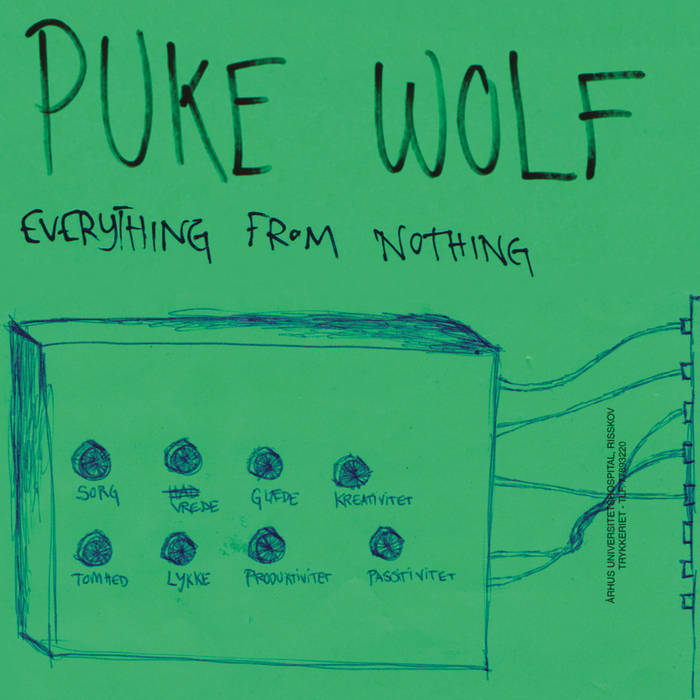 PUKE WOLF
EVERYTHING FROM NOTHING
SORG
HAD
VREDE
GLÆDE
KREATIVITET
TOMHED
LYKKE
PRODUKTIVITET
PASSTIVITET
ÅRHUS UNIVERSITETSHOSPITAL, RISSKOV
TRYKKERIET - TLF. 77893220